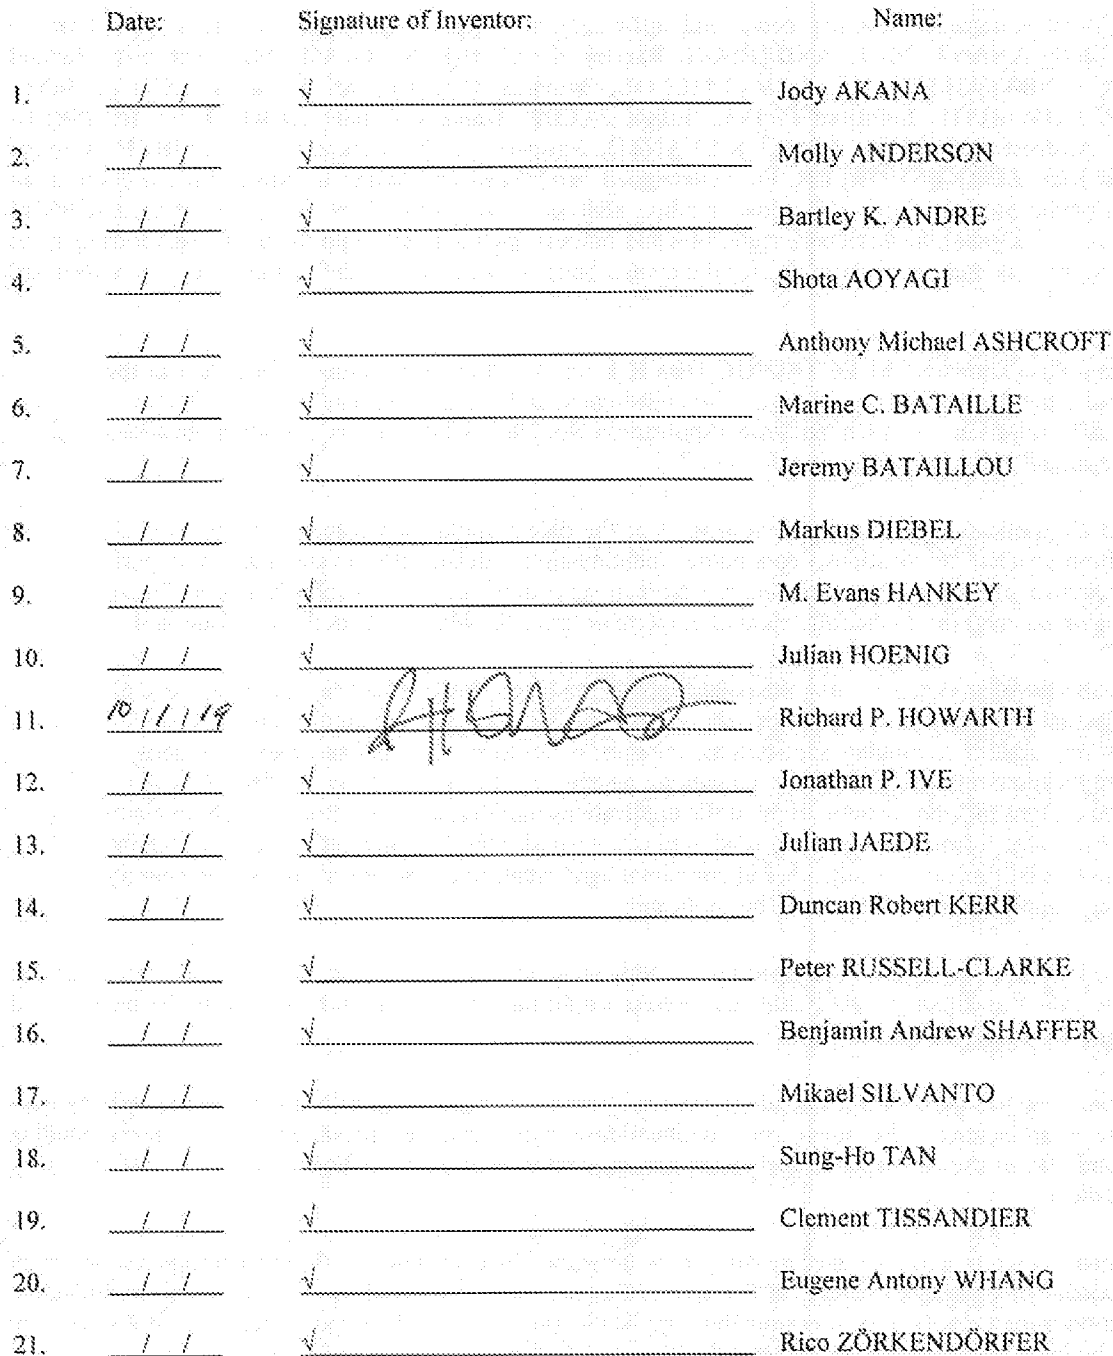 Date: Signature of Inventor: Name:
1. / / √ Jody AKANA
2. / / √ Molly ANDERSON
3. / / √ Bartley K. ANDRE
4. / / √ Shota AOYAGI
5. / / √ Anthony Michael ASHCROFT
6. / / √ Marine C. BATAILLE
7. / / √ Jeremy BATAILLOU
8. / / √ Markus DIEBEL
9. / / √ M. Evans HANKEY
10. / / √ Julian HOENIG
11. 10 / 1 / √ Richard P. HOWARTH
12. / / √ Jonathan P. IVE
13. / / √ Julian JAEDE
14. / / √ Duncan Robert KERR
15. / / √ Peter RUSSELL-CLARKE
16. / / √ Benjamin Andrew SHAFFER
17. / / √ Mikael SILVANTO
18. / / √ Sung-Ho TAN
19. / / √ Clement TISSANDIER
20. / / √ Eugene Antony WHANG
21. / / √ Rico ZÖRKENDÖRFER